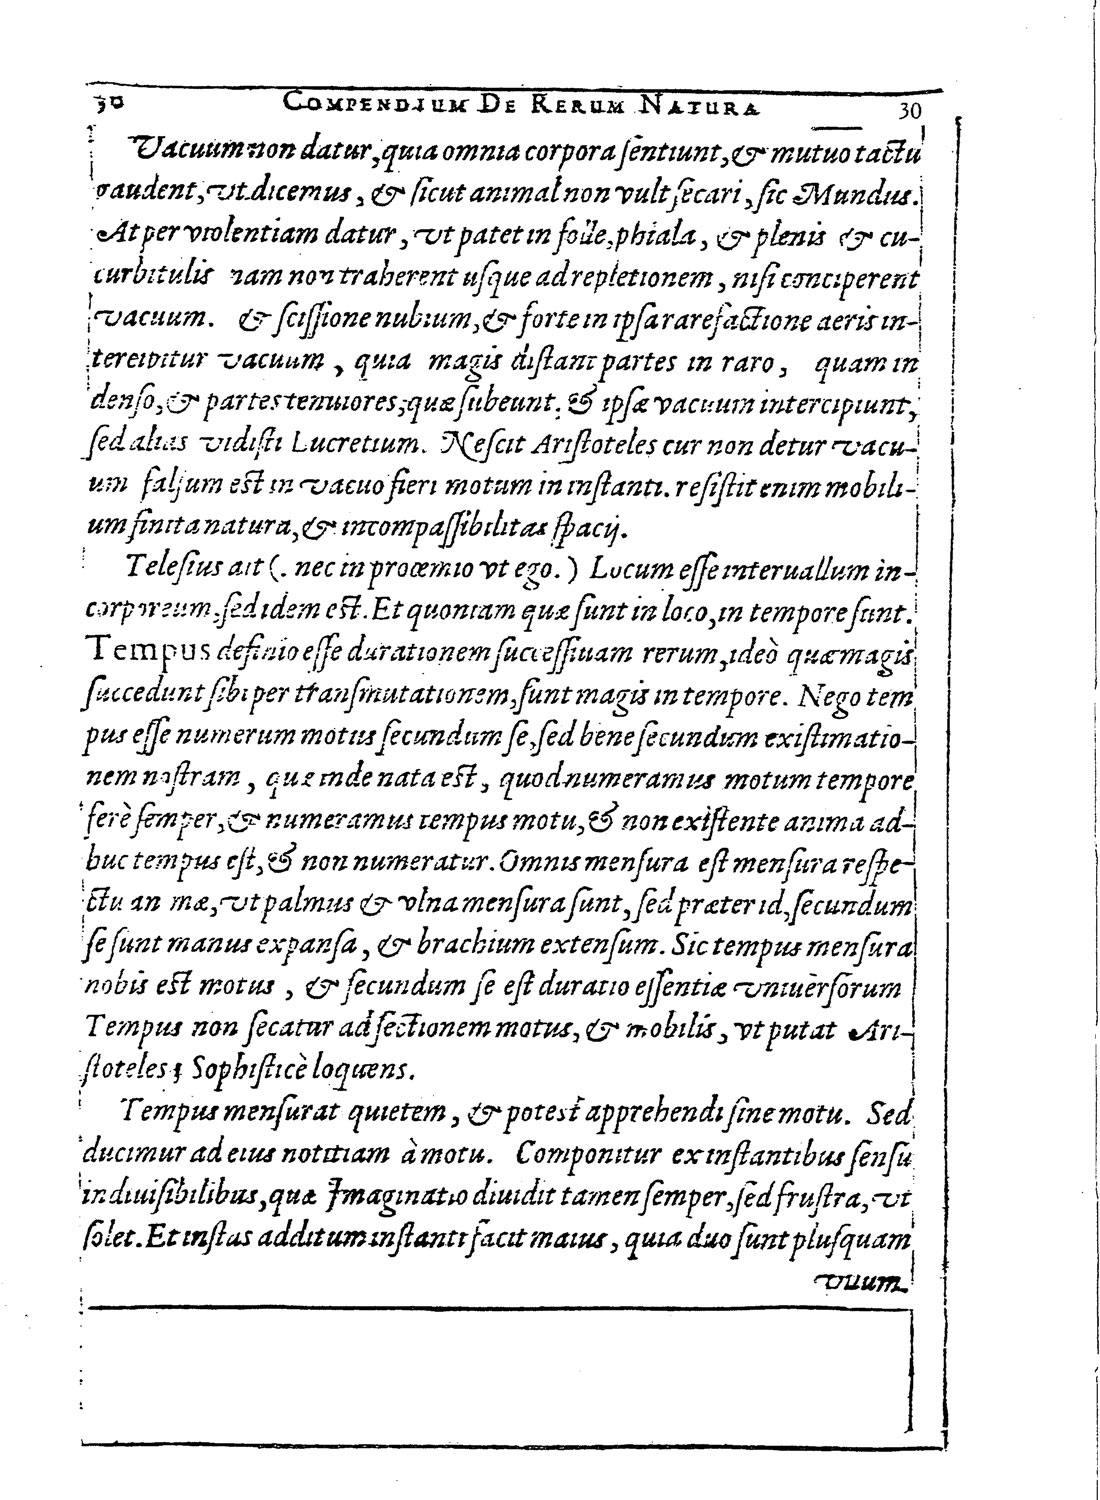 30 COMPENDIUM DE RERUM NATURA 30
Vacuum non datur, quia omnia corpora ſentiunt, & mutuo tactu
gaudent, vt dicemus, & ſicut animal non vult ſecari, ſic Mundus.
At per violentiam datur, vt patet in folle, phiala, & plenis & cu-
curbitulis nam non traherent uſque ad repletionem, niſi conciperent
vacuum. & ſciſſione nubium, & forte in ipſa rarefactione aeris in-
tercipitur vacuum, quia magis diſtant partes in raro, quam in
denſo, & partes tenuiores, quæ ſubeunt. & ipſæ vacuum intercipiunt,
ſed alias vidiſti Lucretium. Neſcit Ariſtoteles cur non detur vacu-
um falſum eſt in vacuo fieri motum in inſtanti. reſiſtit enim mobili-
um finita natura, & incompaſſibilitas ſpacij.
Teleſius ait (. nec in proœmio vt ego.) Locum eſſe interuallum in-
corporeum, ſed idem eſt. Et quoniam quæ ſunt in loco, in tempore ſunt.
Tempus definio eſſe durationem ſucceſſiuam rerum, ideò quæ magis
ſuccedunt ſibi per tranſmutationem, ſunt magis in tempore. Nego tem
pus eſſe numerum motus ſecundum ſe, ſed bene ſecundum exiſtimatio-
nem noſtram, quæ inde nata eſt, quod numeramus motum tempore
ferè ſemper, & numeramus tempus motu, & non exiſtente anima ad-
huc tempus eſt, & non numeratur. Omnis menſura eſt menſura reſpe-
ctu an mæ, vt palmus & vlna menſura ſunt, ſed præter id, ſecundum
ſe ſunt manus expanſa, & brachium extenſum. Sic tempus menſura
nobis eſt motus, & ſecundum ſe eſt duratio eſſentiæ vniuerſorum
Tempus non ſecatur ad ſectionem motus, & mobilis, vt putat Ari-
ſtoteles; Sophiſticè loquens.
Tempus menſurat quietem, & poteſt apprehendi ſine motu. Sed
ducimur ad eius notitiam à motu. Componitur ex inſtantibus ſenſu
indiuiſibilibus, quæ Imaginatio diuidit tamen ſemper, ſed fruſtra, vt
ſolet. Et inſtas additum inſtanti facit maius, quia duo ſunt pluſquam
vnum.